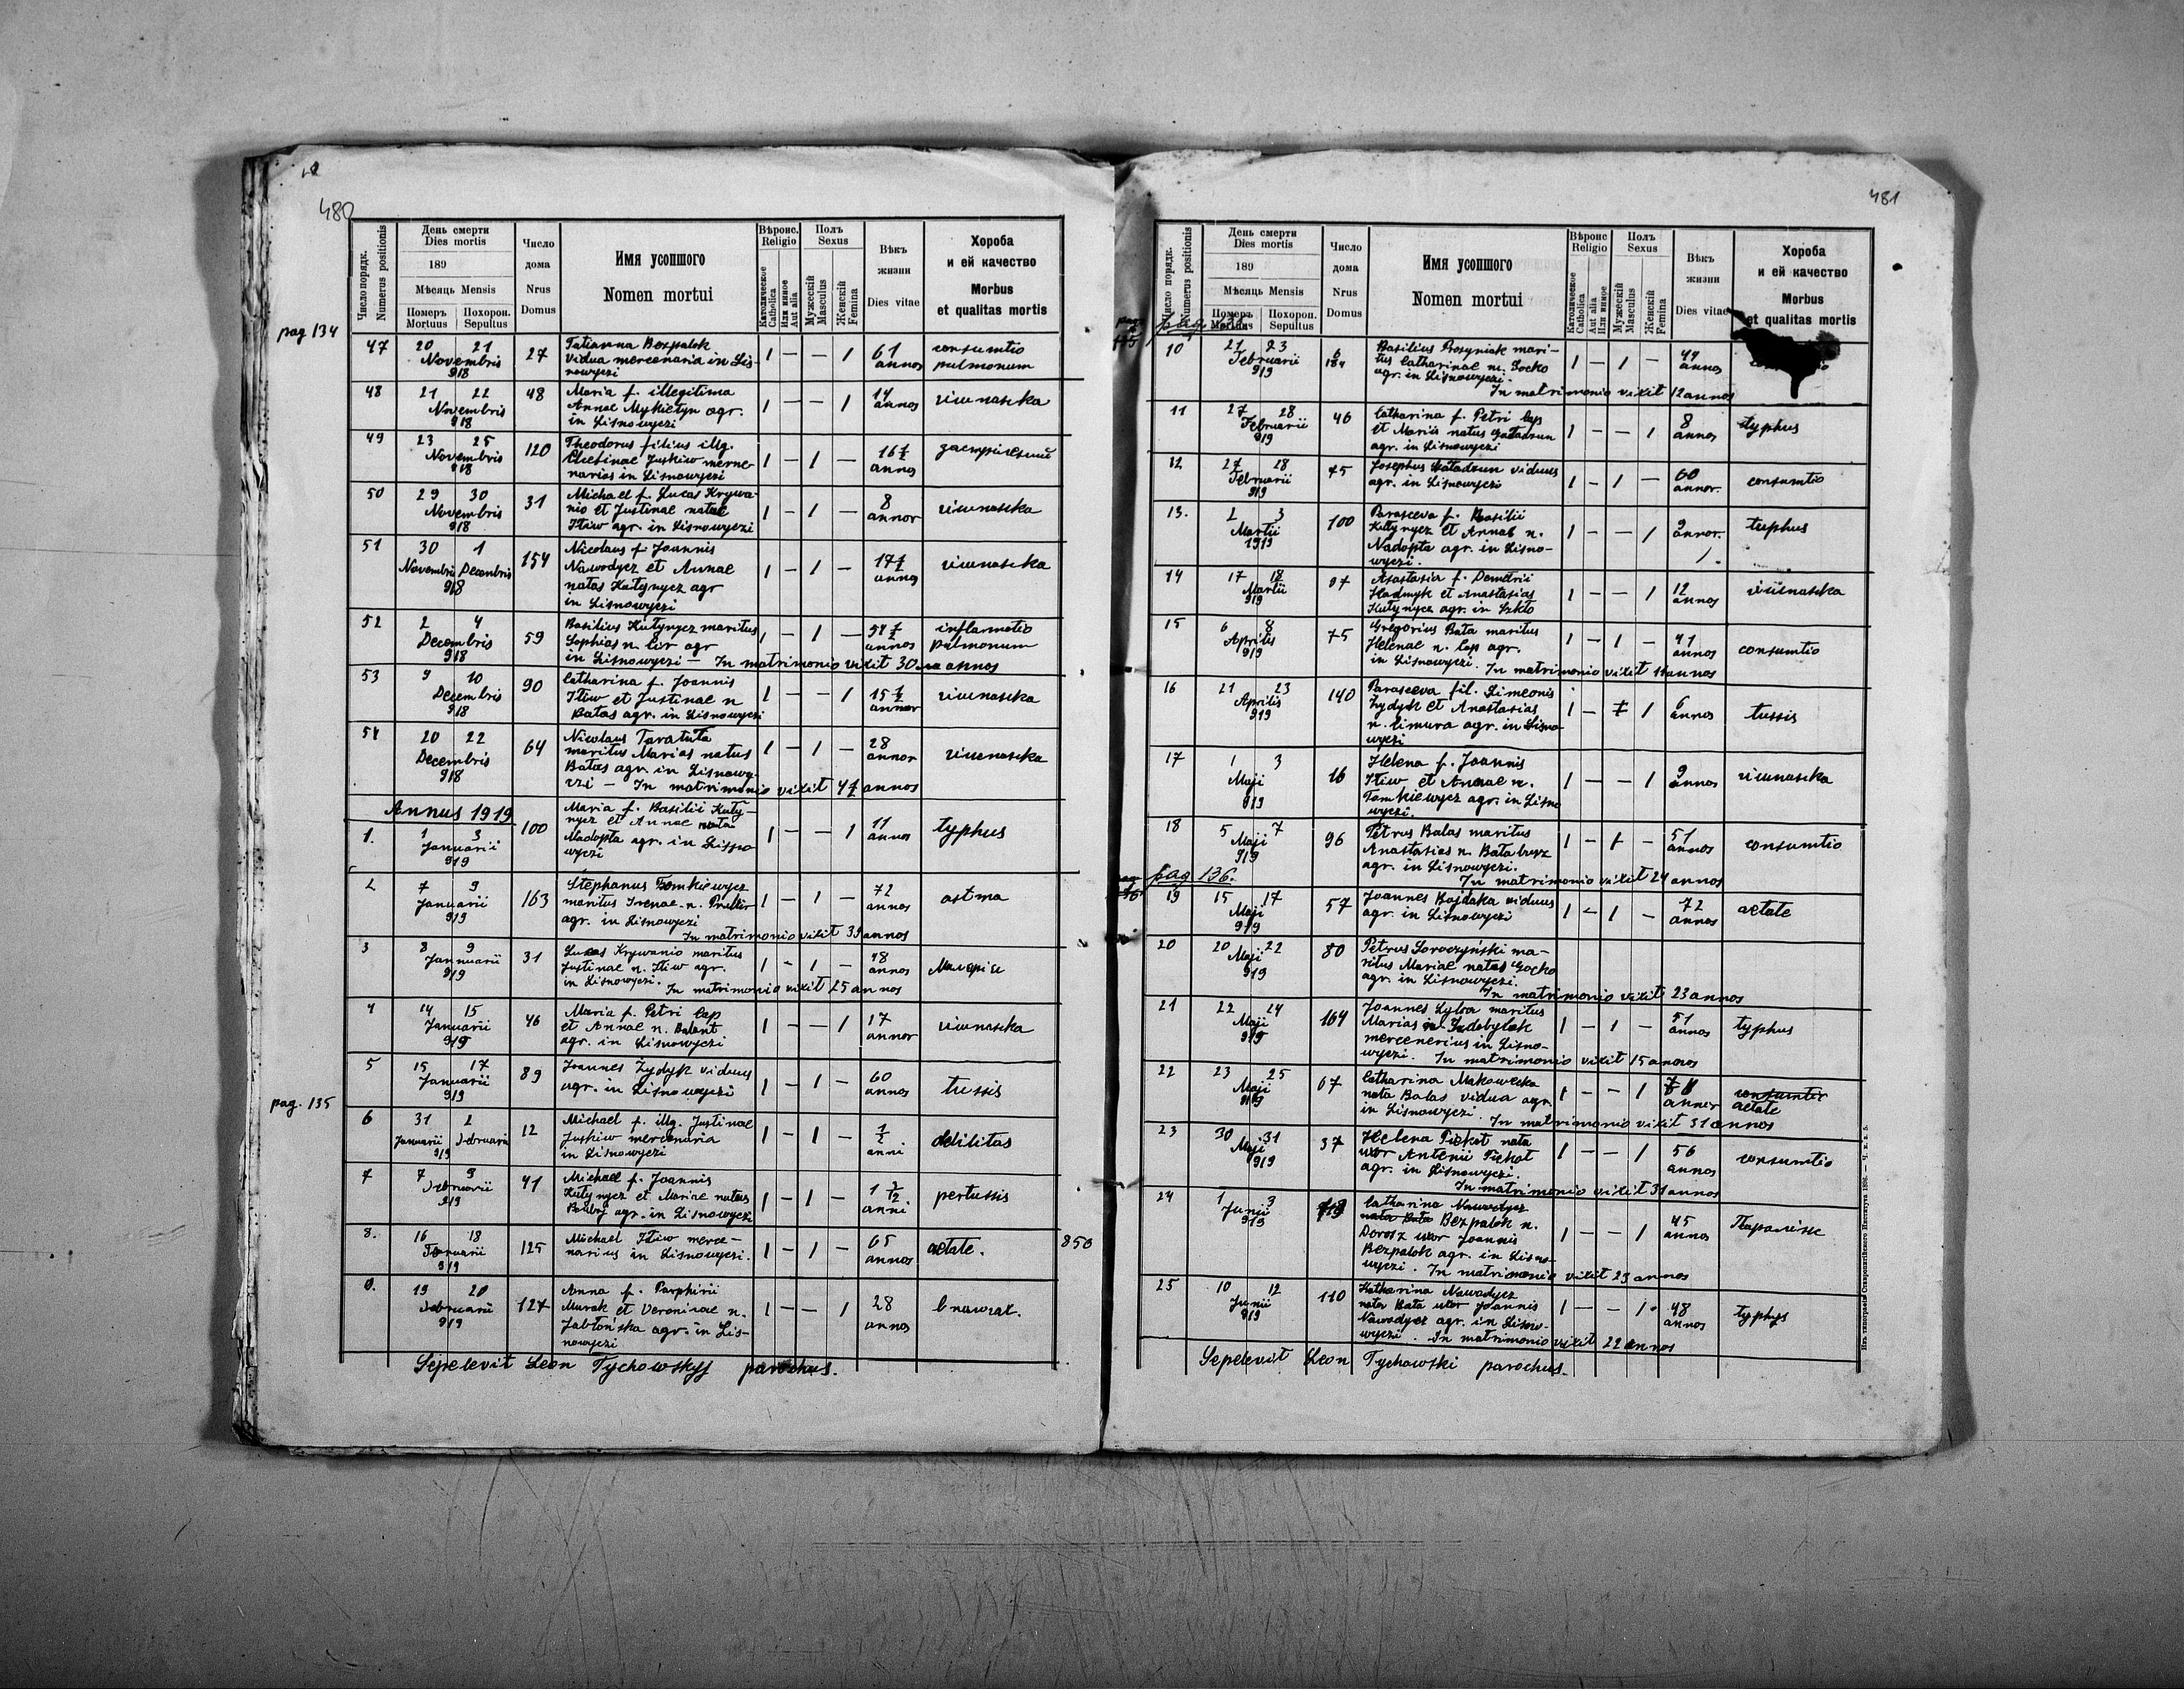 480
День смерти
Dies mortis
189
Мѣсяць Mensis
Номеръ Mortuus
Похорон. Sepultus
Число порядк.
Numerus positionis
Число
дома
Nrus
Domus
Имя усопшого
Nomen mortui
Вѣроис.
Religio
Католическое
Catholica
Или инное
Aut alia
Полъ
Sexus
Мужескій
Masculus
Женскій
Femina
Вѣкъ
жизни
Dies vitae
Хороба
и ей качество
Morbus
et qualitas mortis
pag 134
47 20 21 Novembris 918 27
Tatianna Bezpalok
vidua mercenaria in Lis-
nowyczi
1 — — 1 61 annos consumtio pulmonum
48 21 22 Novembris 918 48
Maria f. illegitima
Annae Mykietyn agr.
in Lisnowyczi
1 — — 1 14 annos
49 23 25 Novembris 918 120
Theodorus filius illg.
Juskiw merce-
narias in Lisnowyczi
1 — 1 — 16 1/2 annos
50 29 30 Novembris 918 31
Michael f. Lucas Krywa-
nio et Justinae natae
Itiw agr. in Lisnowyczi
1 — 1 — 8 annor
51 30 1 Novembris Decembris 918 154
Nicolaus f Joannis
Nawodycz et Annae
natas Kutynycz agr
in Lisnowyczi
1 — 1 — 17 1/2 annos
52 2 4 Decembris 918 59
Basilius Kutynycz maritus
Sophias n. Cir agr
in Lisnowyczi — In matrimonio vixit 30 annos
1 — 1 — annos inflamatio pulmonum
53 9 10 Decembris 918 90
Catharina f. Joannis
Itiw et Justinae n
Batas agr. in Lisnowyczi
1 — — 1 15 1/2 annor
54 20 22 Decembris 918 64
Nicolaus Taratuta
maritus Marias natus
Batas agr. in Lisnowy-
czi — In matrimonio vixit 4 1/2 annos
1 — 1 — 28 annor
Annus 1919
1. 1 3 Januarii 919 100
Maria f. Basilii Kuty-
nycz et Annae nata
Nadopta agr. in Lisno
wyczi
1 — — 1 11 annos typhus
2 7 9 Januarii 919 163
Stephanus Tomkiewycz
maritus Irenae n.
agr. in Lisnowyczi
In matrimonio vixit 39 annos
1 — 1 — 72 annos astma
3 8 9 Januarii 919 31
Lucas Krywanio maritus
Justinae n. Itiw agr.
in Lisnowyczi. In matrimonio vixit 25 annos
1 — 1 — 48 annos Малярія
4 14 15 Januarii 919 46
Maria f. Petri Cap
et Annae n. Balant
agr. in Lisnowyczi
1 — — 1 17 annor
5 15 17 Januarii 919 89
Joannes Zydyk viduus
agr. in Lisnowyczi
1 — 1 — 60 annos tussis
pag. 135
6 31 2 Januarii Februarii 919 12
Michael f. illg. Justinae
Juskiw mercenaria
in Lisnowyczi
1 — 1 — 1/2 anni debilitas
7 7 9 Februarii 919 41
Michael f. Joannis
Kutynycz et Mariae natus
agr. in Lisnowyczi
1 — 1 — anni pertussis
8. 16 18 919 125
Michael Itiw merce-
narius in Lisnowyczi.
1 — 1 — 65 annos aetate.
850
9. 19 20 Februarii 919 127
Anna f. Porphirii
Murak et Veronicae n.
Jabłońska agr. in Lis-
nowyczi
1 — — 1 28 annos
Sepelevit Leon Tychowskyj parochus.
481
День смерти
Dies mortis
189
Мѣсяць Mensis
Номеръ Mortuus
Похорон. Sepultus
Число порядк.
Numerus positionis
Число
дома
Nrus
Domus
Имя усопшого
Nomen mortui
Вѣроис
Religio
Католическое
Catholica
Aut alia
Или инное
Полъ
Sexus
Мужескій
Masculus
Женскій
Femina
Вѣкъ
жизни
Dies vitae
Хороба
и ей качество
Morbus
et qualitas mortis
10 21 23 Februarii 919
Basilius Prosyniak mari-
tus Catharinae n. Gocko
agr. in Lisnowyczi.
In matrimonio vixit 12 annos
1 — 1 — annos
11 27 28 Februarii 919 46
Catharina f. Petri Cap
et Mariis natus
agr. in Lisnowyczi
1 — — 1 8 annos typhus
12 27 28 Februarii 919 75
Josephus viduus
agr. in Lisnowyczi
1 — 1 — 60 annor. consumtio
13. 2 3 Martii 1919 100
Parasceva f. Basilii
Kutynycz et Annae n.
Nadopta agr. in Lisno-
wyczi.
1 — — 1 9 annor. typhus
14 17 18 Martii 919 97
Anastasia f. Demetrii
Hadmyk et Anastasias
Kutynycz agr. in Szkło
1 — — 1 12 annos
15 6 8 Aprilis 919 75
Gregorius Bata maritus
Helenae n. Cap agr.
in Lisnowyczi. In matrimonio vixit annos
1 — 1 — 41 annos consumtio
16 21 23 Aprilis 919 140
Parasceva fil. Simeonis
Zydyk et Anastasias
n. Cimura agr. in Lisno
wyczi
1 — 1 6 annos tussis
17 1 3 Maji 919 16
Helena f. Joannis
Itiw et Annae n.
Tomkiewycz agr. in Lisno
wyczi.
1 — — 1 9 annos
18 5 7 Maji 919 96
Petrus Balas maritus
Anastasias n.
agr. in Lisnowyczi.
In matrimonio vixit 24 annos
1 — 1 — 51 annos consumtio
pag 136.
19 15 17 Maji 919 57
Joannes Bajdaka viduus
agr. in Lisnowyczi
1 — 1 — 72 annos aetate
20 20 22 Maji 919 80
Petrus Soroczyński ma-
ritus Mariae natas Gocko
agr. in Lisnowyczi.
In matrimonio vixit 23 annos
21 22 24 Maji 919 164
Joannes maritus
Marias
mercenerius in Lisno-
wyczi. In matrimonio vixit 15 annos
1 — 1 — 51 annos typhus
22 23 25 Maji 919 67
Catharina Makowecka
nata Balas vidua agr.
in Lisnowyczi. In matrimonio vixit 31 annos
1 — — 1 annor consumtio aetate
23 30 31 Maji 919 37
Helena nata
uxor Antonii
agr. in Lisnowyczi.
In matrimonio vixit 31 annos
1 — — 1 56 annos consumtio
24 1 3 Junii 919
Catharina Nawodycz
nata Bata Bezpalok n.
Dorosz uxor Joannis
Bezpalok agr. in Lisno-
wyczi. In matrimonio vixit 23 annos
1 — — 1 45 annos
25 10 12 Junii 919 110
Katharina Nawodycz
nata Bata uxor Joannis
Nawodycz agr. in Lisno-
wyczi. In matrimonio vixit 22 annos
1 — — 1 48 annos typhys
Sepelevit Leon Tychowski parochus.